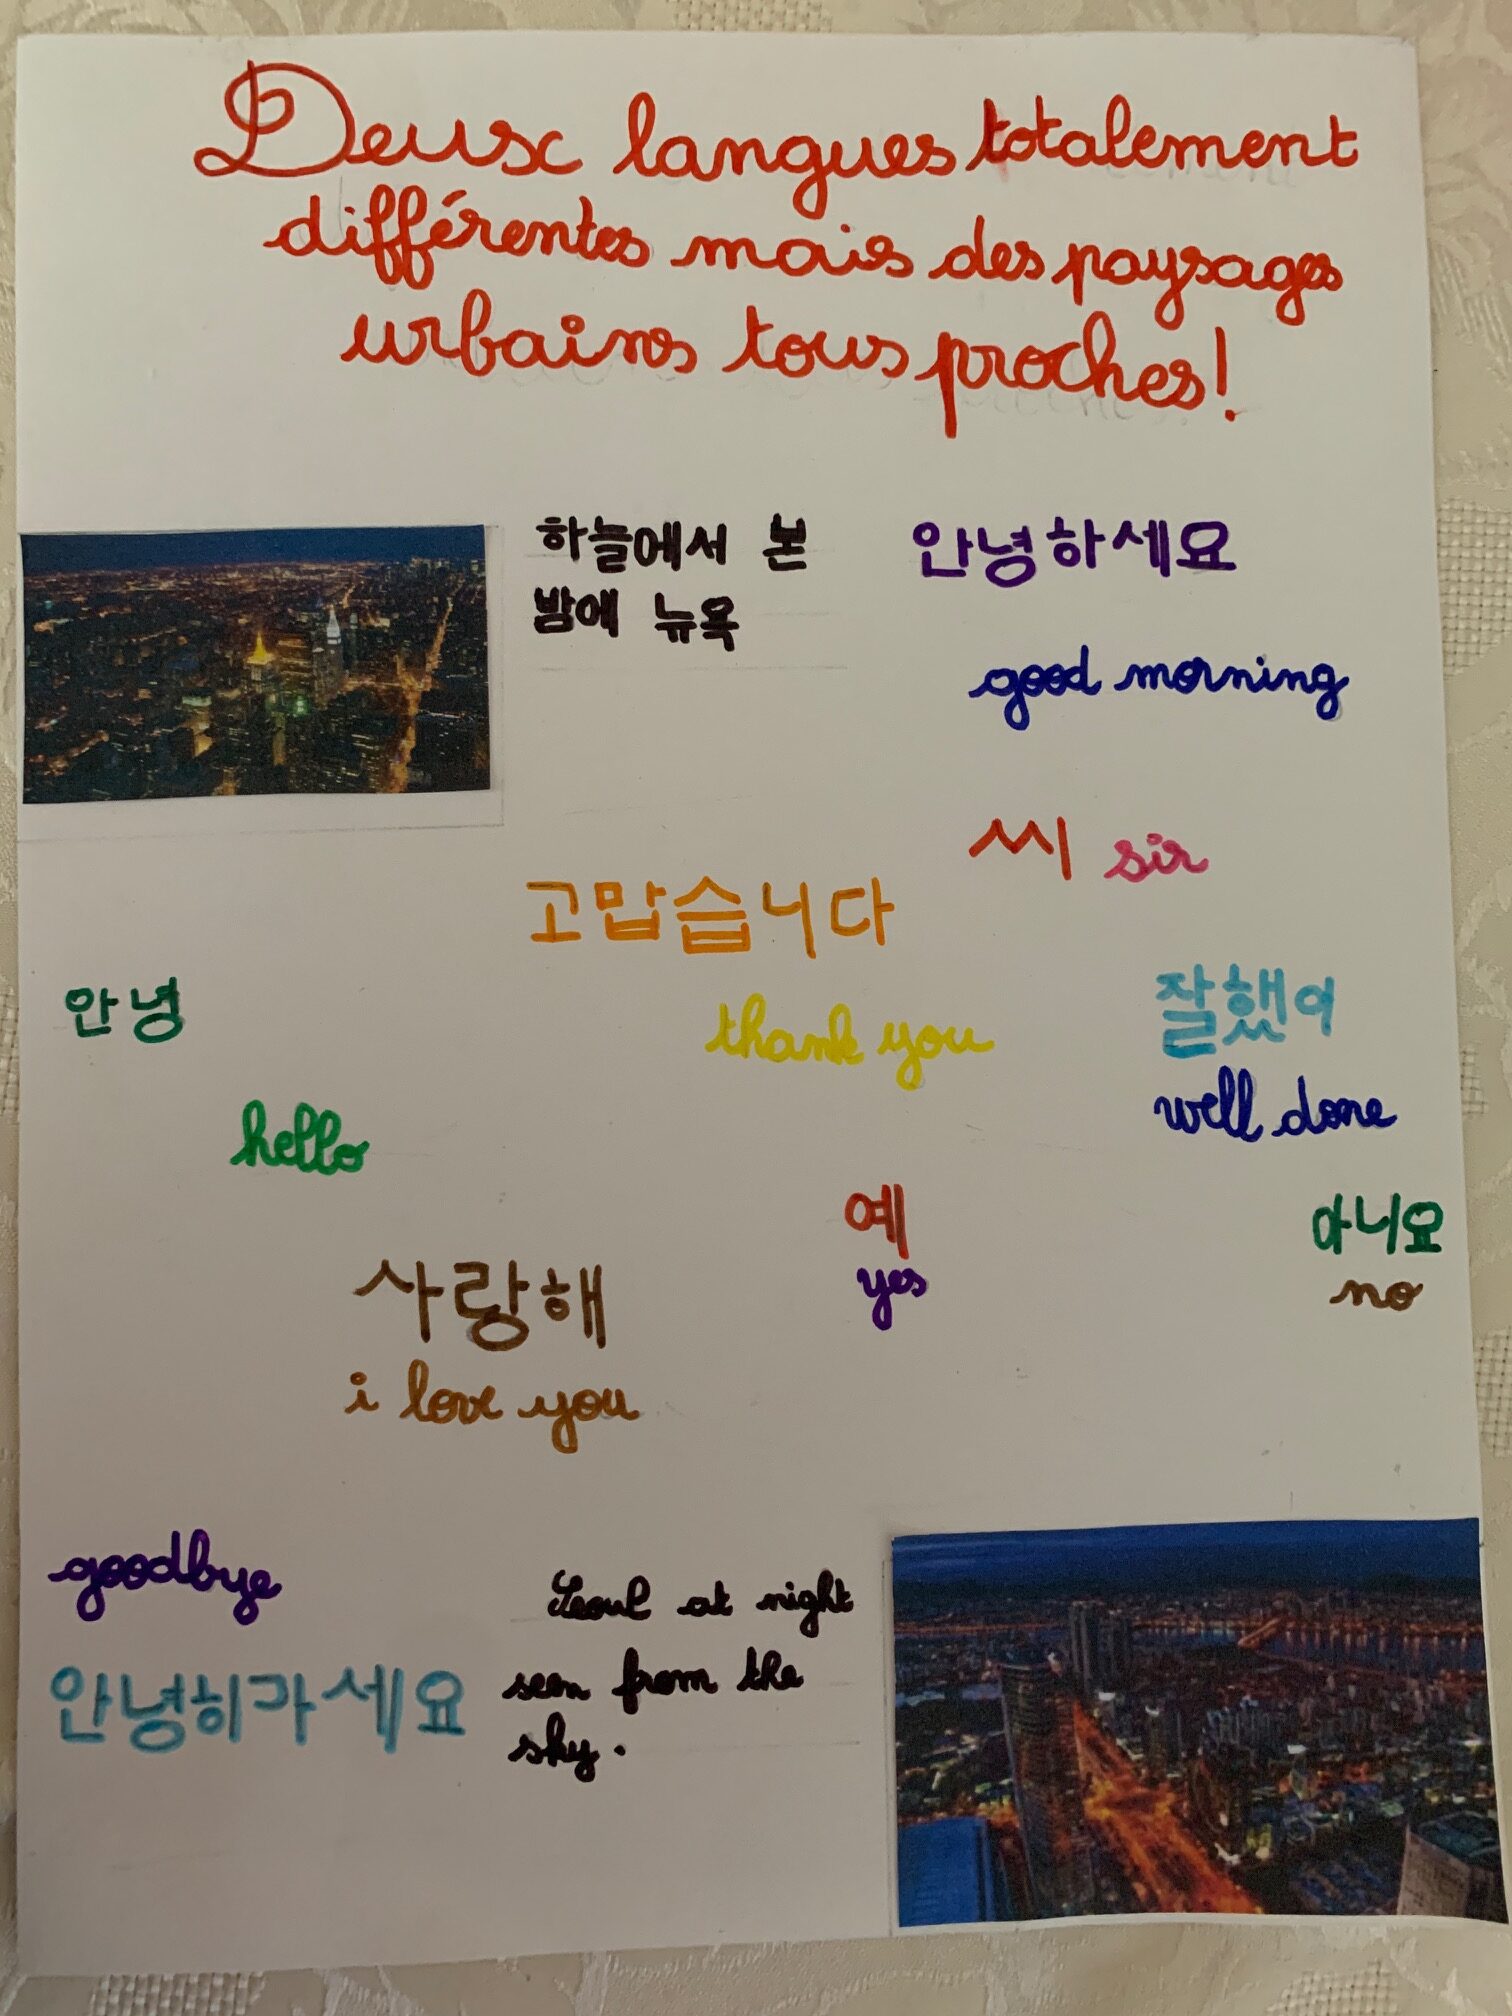 Deux langues totalement
différentes mais des paysages
urbains tous proches!
하늘에서 본
밤에 뉴욕
안녕하세요
good morning
씨 sir
고맙습니다
thank you
안녕
hello
잘했어
well done
예
yes
아니요
no
사랑해
i love you
goodbye
안녕히가세요
Seoul at night
seen from the
sky.